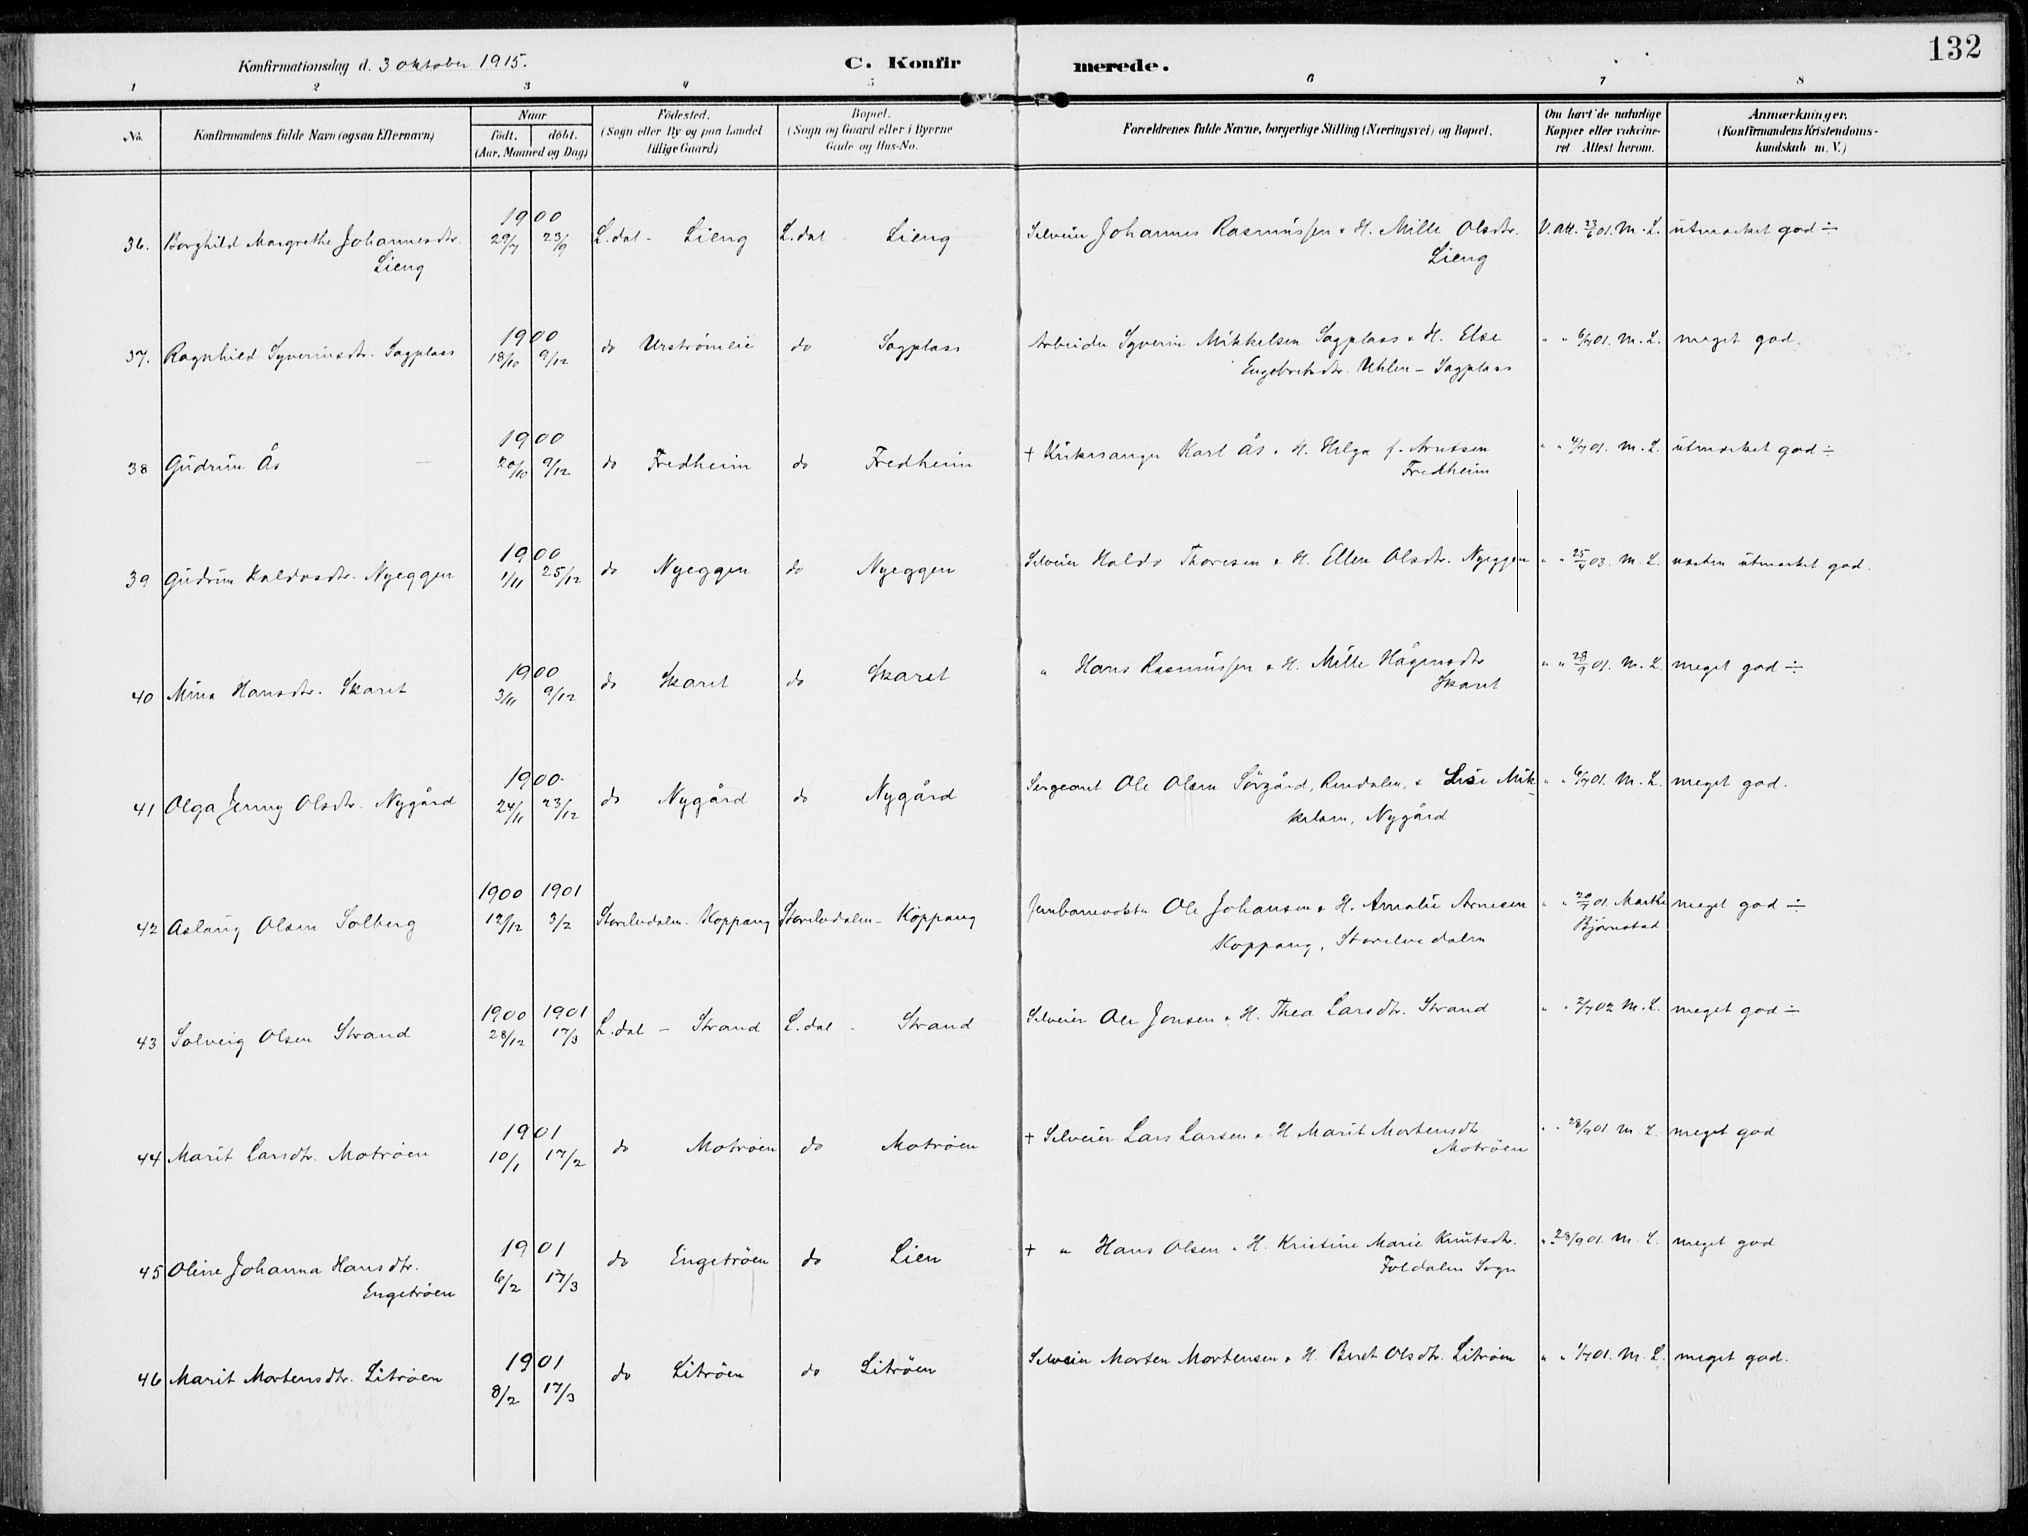 132
Konfirmationsdag d. 3 oktober 1915. C. Konfirmerede.
1 2 3 4 5 6 7 8
No. Konfirmandens fulde Navn (ogsaa Efternavn) Naar født. døbt. (Aar, Maaned og Dag) Fødested. (Sogn eller By og paa Landet tillige Gaard) Bopæl. (Sogn og Gaard eller i Byerne Gade og Hus-No. Forældrenes fulde Navne, borgerlige Stilling (Næringsvei) og Bopæl. Om havt de naturlige Kopper eller vakcineret Attest herom. Anmærkninger. (Konfirmandens Kristendomskundskab m. V.)
1900
36. Borghild Margrethe Johannesdtr. 29/7 23/9 L.dal - Lieng L.dal Lieng Selveier Johannes Rasmussen & H. Mille Olsdtr. V. Att. 23/6 01. M. L. utmerket god ÷
Lieng Lieng
1900
37. Ragnhild Syverinsdtr. Sagplass 18/10 9/12 do Urstrømlie do Sagplass Arbeider Syverin Mikkelsen Sagplass & H. Else " " 6/7 01. M. L. meget god.
Engebretsdtr. Uhlen - Sagplass
1900
38 Gudrun Ås 20/10 9/12 do Fredheim do Fredheim + Kirkesanger Karl Ås & H. Helga f. Arntsen " " 4/7 01. M. L. utmerket god ÷
Fredheim
1900
39 Gudrun Haldosdtr. Nyeggen 1/11 25/12 do Nyeggen do Nyeggen Selveier Haldo Thoresen & H. Ellen Olsdtr. Nyeggen " " 25/4 03. M. L. næsten utmerket god.
1900
40 Mina Hansdtr. Skaret 3/11 9/12 do Skaret do Skaret " Hans Rasmussen & H. Mille Hågensdtr " " 28/9 01. M. L. meget god ÷
Skaret
1900
41 Olga Jenny Olsdtr. Nygård 24/11 23/12 do Nygård do Nygård Sergeant Ole Olsen Sörgård, Rendalen, & Lise Mik- " " 6/7 01. M. L. meget god.
kelsen, Nygård
1900 1901
42 Aslaug Olsen Solberg 12/12 3/2 Storelvdalen - Koppang Storelvdalen - Koppang Jernbanevokter Ole Johansen & H. Amalie Arnesen " " 20/7 01. Marthe meget god ÷
Koppang, Storelvedalen Bjørnstad
1900 1901
43 Solveig Olsen Strand 28/12 17/3 L.dal - Strand L.dal - Strand Selveier Ole Jonsen & H. Thea Larsdtr. Strand " " 2/7 02 M. L. meget god ÷
1901
44 Marit Larsdtr. Motrøen 10/1 17/2 do Motrøen do Motrøen + Selveier Lars Larsen & H Marit Mortensdtr " " 28/9 01 M. L. meget god
Motrøen
1901
45 Oline Johanna Hansdtr. 6/2 17/3 do Engetrøen do Lien + " Hans Olsen & H. Kristine Marie Knutsdtr. " " 28/9 01. M. L. meget god
Engetrøen Foldalen Sogn
1901
46 Marit Mortensdtr. Litrøen 8/2 17/3 do Litrøen do Litrøen Selveier Morten Mortensen & H. Beret Olsdtr. Litrøen " " 1/7 01. M. L. meget god.